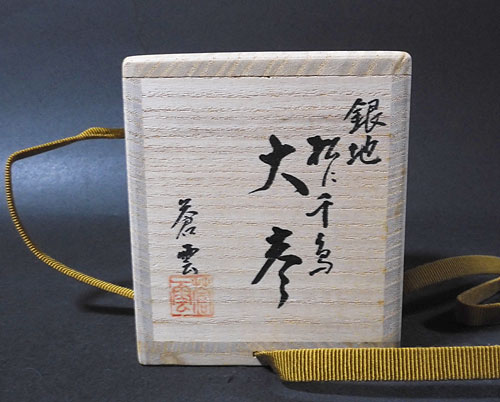 銀地
松に千鳥
大棗
蒼雲